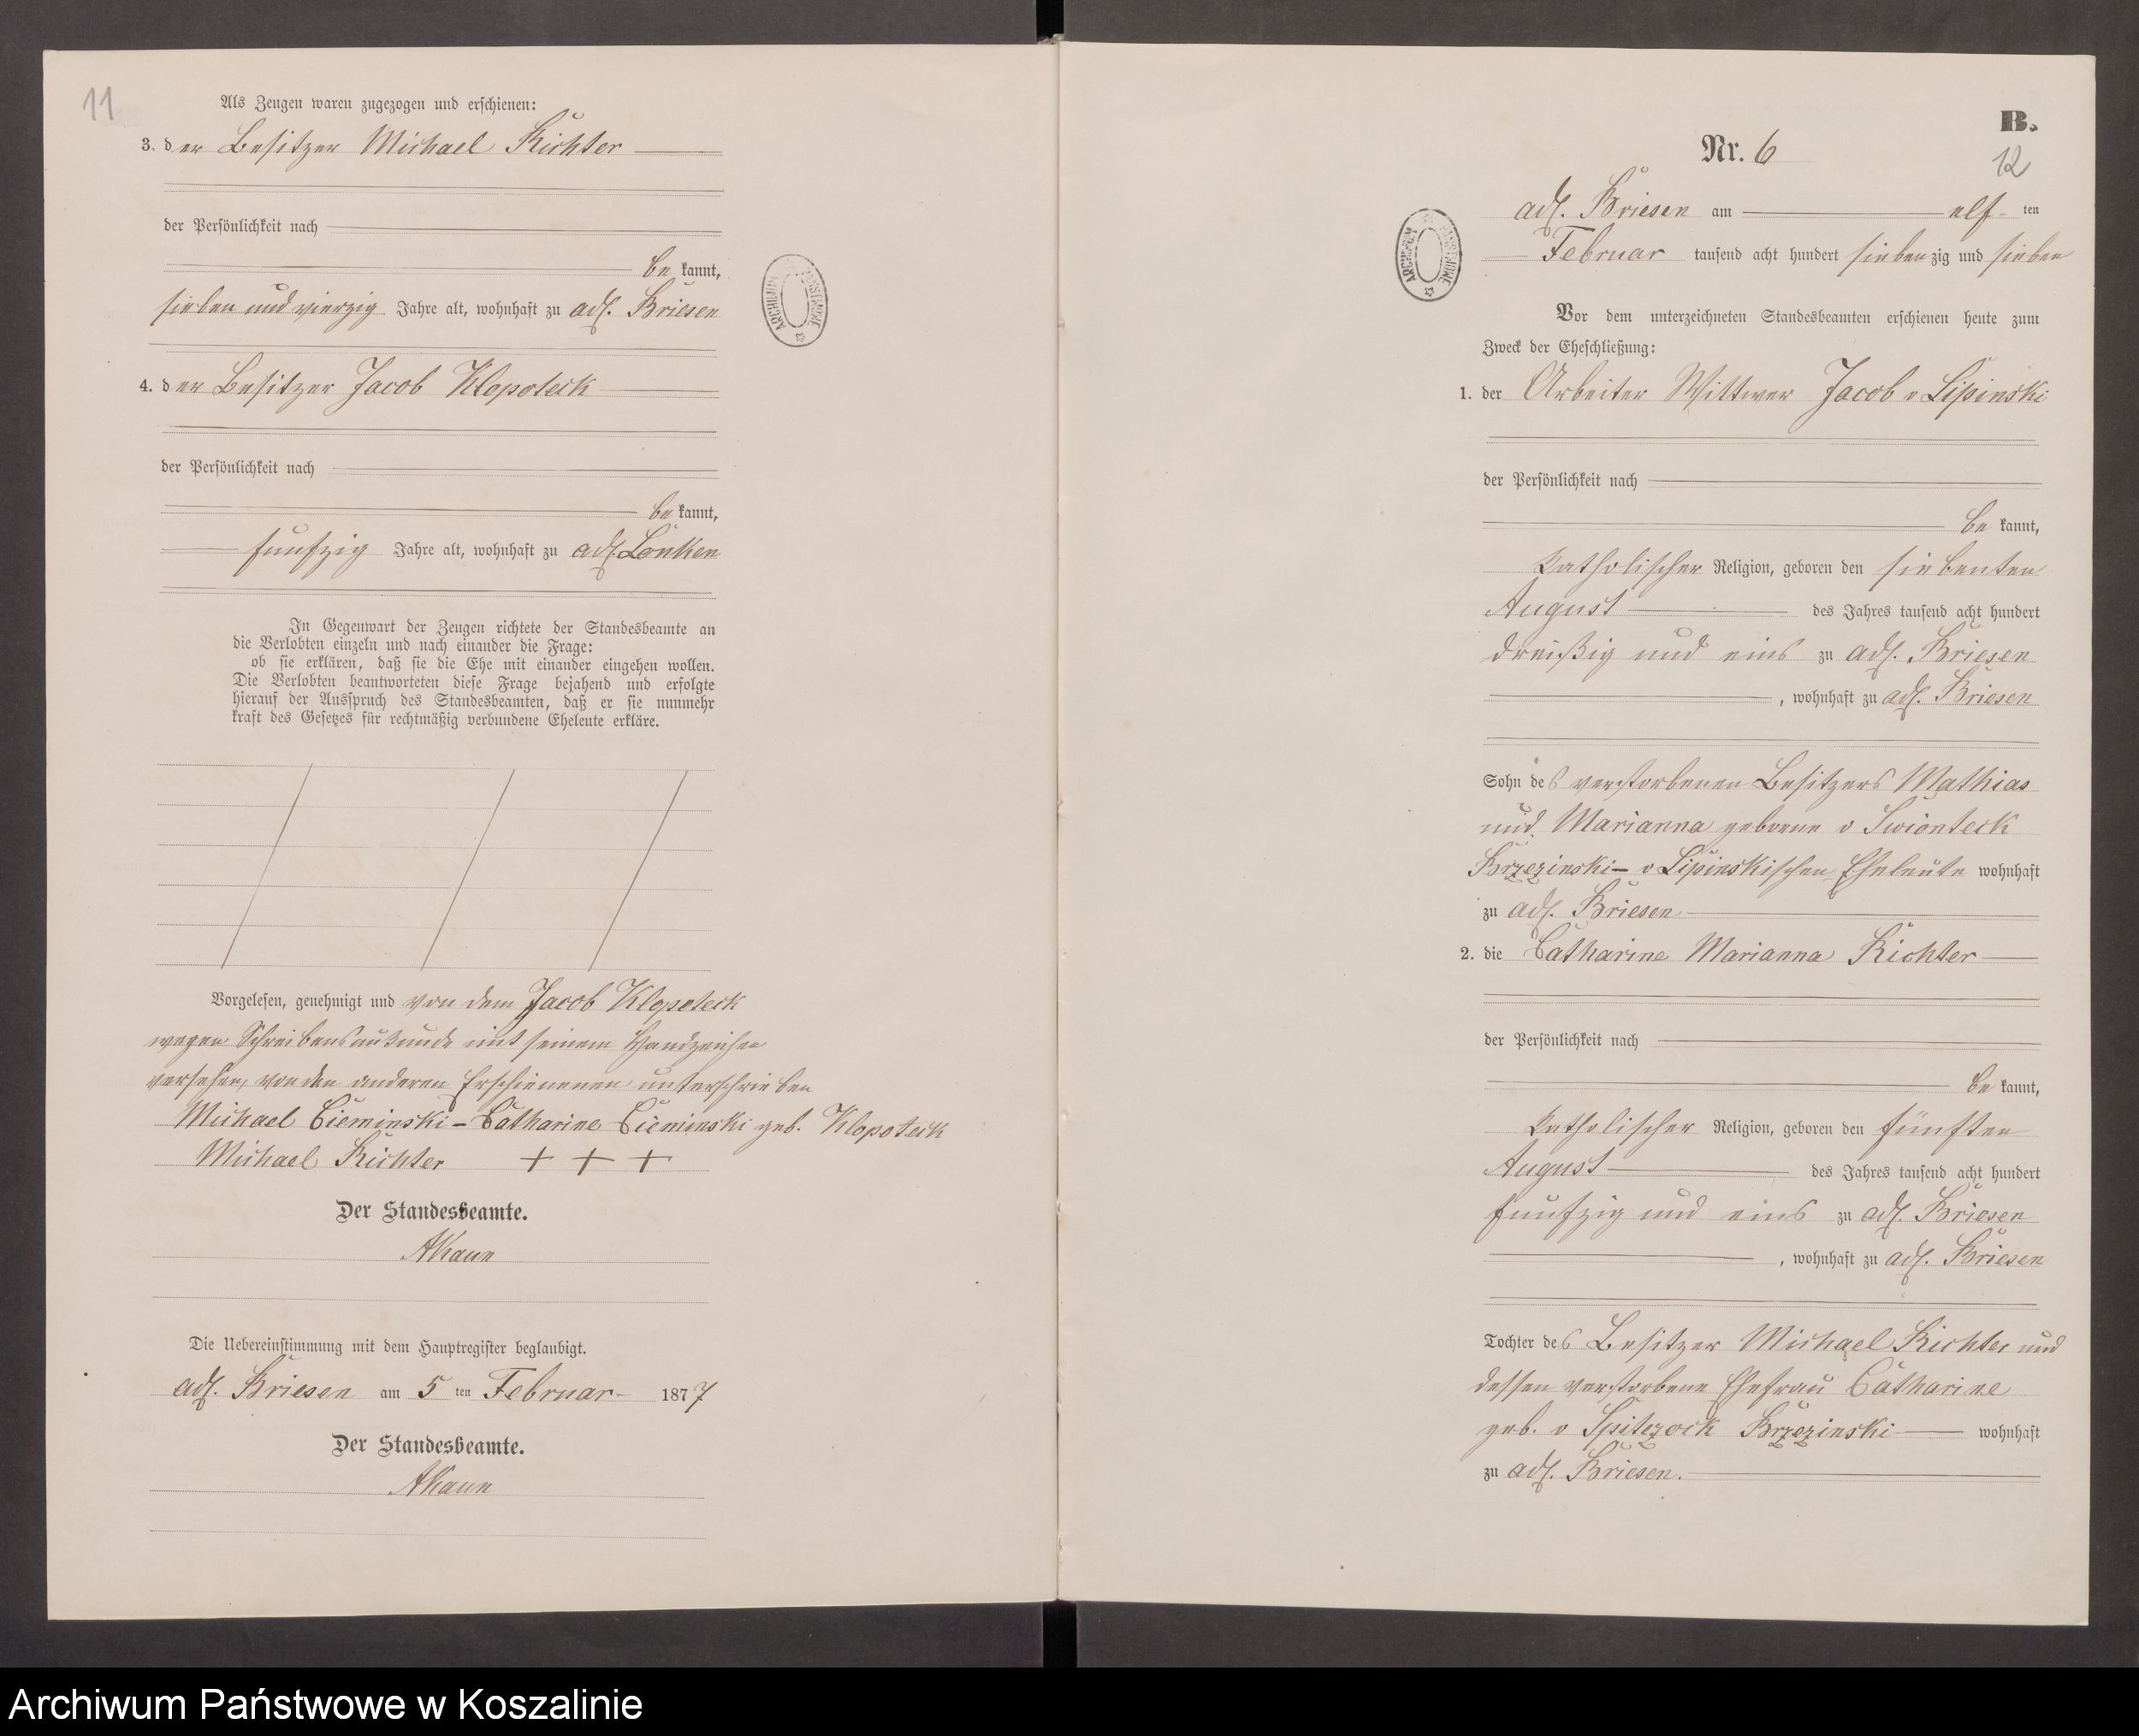 11
Als Zeugen waren zugezogen und erschienen:
3. der Besitzer Michael Richter
der Persönlichkeit nach
bekannt,
sieben und vierzig Jahre alt, wohnhaft zu adl. Briesen
4. der Besitzer Jacob Klopoteck
der Persönlichkeit nach
bekannt,
funfzig Jahre alt, wohnhaft zu adl. Lonken
In Gegenwart der Zeugen richtete der Standesbeamte an
die Verlobten einzeln und nach einander die Frage:
ob sie erklären, daß sie die Ehe mit einander eingehen wollen.
Die Verlobten beantworteten diese Frage bejahend und erfolgte
hierauf der Ausspruch des Standesbeamten, daß er sie nunmehr
kraft des Gesetzes für rechtmäßig verbundene Eheleute erkläre.
Vorgelesen, genehmigt und von dem Jacob Klopoteck
wegen Schreibensunkunde mit seinem Handzeichen
versehen, von den anderen Erschienenen unterschrieben
Michael Cieminski - Catharine Cieminski geb. Klopoteck
Michael Richter + + +
Der Standesbeamte.
Die Uebereinstimmung mit dem Hauptregister beglaubigt.
adl. Briesen am 5 ten Februar 1877
Der Standesbeamte.
ARCHIWUM PAŃSTWOWE
B.
Nr. 6
12
adl. Briesen am elf ten
Februar tausend acht hundert siebenzig und sieben
ARCHIWUM PAŃSTWOWE
Vor dem unterzeichneten Standesbeamten erschienen heute zum
Zweck der Eheschließung:
1. der Arbeiter Wittwer Jacob v Lipinski
der Persönlichkeit nach
bekannt,
katholischer Religion, geboren den siebenten
August des Jahres tausend acht hundert
dreißig und eins zu adl. Briesen
, wohnhaft zu adl. Briesen
Sohn des verstorbenen Besitzers Mathias
und Marianna geborene v Swionteck
Brzezinski - v Lipinskischen Eheleute wohnhaft
zu adl. Briesen
2. die Catharine Marianna Richter
der Persönlichkeit nach
bekannt,
katholischer Religion, geboren den fünften
August des Jahres tausend acht hundert
funfzig und eins zu adl. Briesen
, wohnhaft zu adl. Briesen
Tochter des Besitzer Michael Richter und
dessen verstorbene Ehefrau Catharine
geb. v Spiczock Brzezinski wohnhaft
zu adl. Briesen.
Archiwum Państwowe w Koszalinie